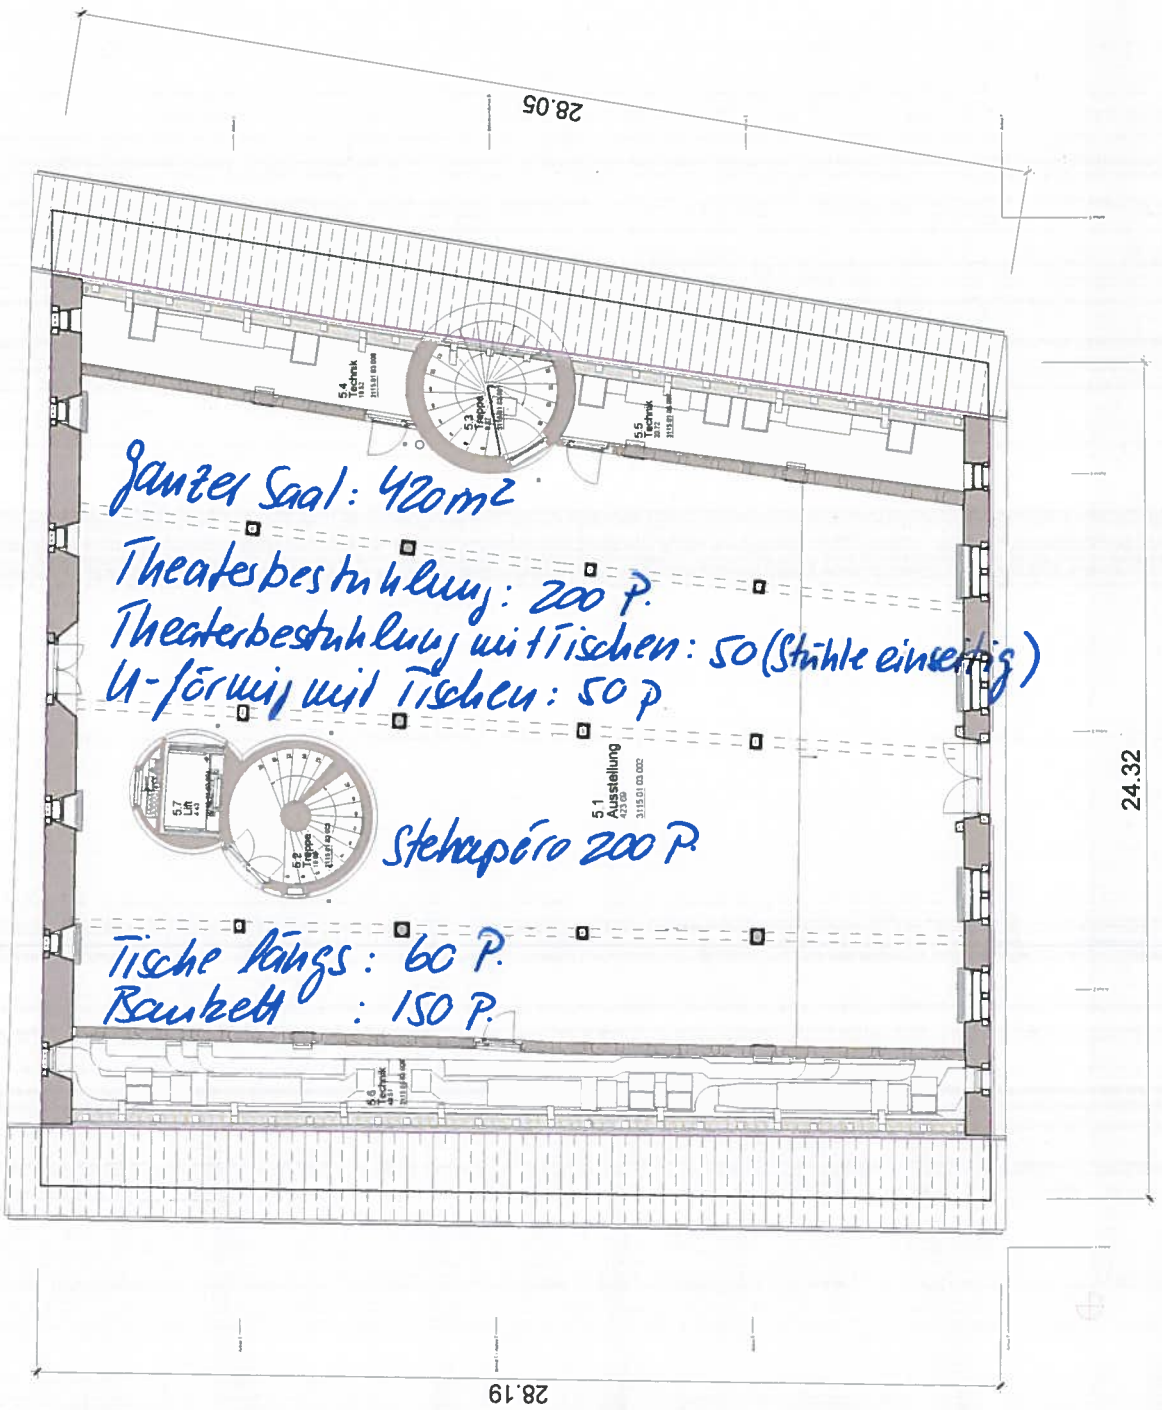 28.05
5.4
Technik
5.3
Treppe
5.5
Technik
Ganzer Saal: 420 m²
Theaterbestuhlung: 200 P.
Theaterbestuhlung mit Tischen: 50 (Stühle einseitig)
U-förmig mit Tischen: 50 P
5.7
Lift
5.2
Treppe
5.1
Ausstellung
3115.01 03 002
Stehapéro 200 P.
24.32
Tische längs: 60 P.
Bankett : 150 P.
5.6
Technik
28.19